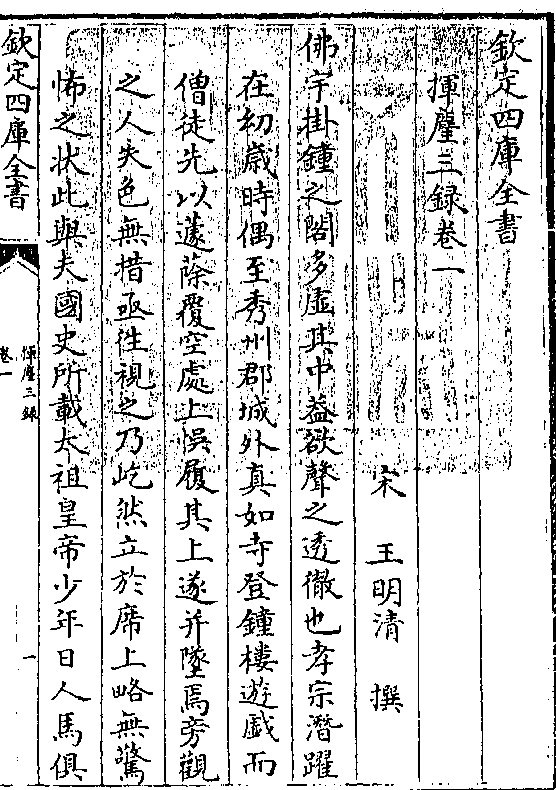 欽定四庫全書
揮麈三録卷一
宋 王明清 撰
佛宇掛鐘之閣多虛其中葢欲聲之透徹也孝宗潛躍
在幼歲時偶至秀州郡城外真如寺登鐘樓遊戲而
僧徒先以蘧蒢覆空處上悞履其上遂并墜焉旁觀
之人失色無措亟徃視之乃屹然立於席上略無驚
怖之狀此與夫國史所載太祖皇帝少年日人馬俱
欽定四庫全書
揮麈三録
卷一
一